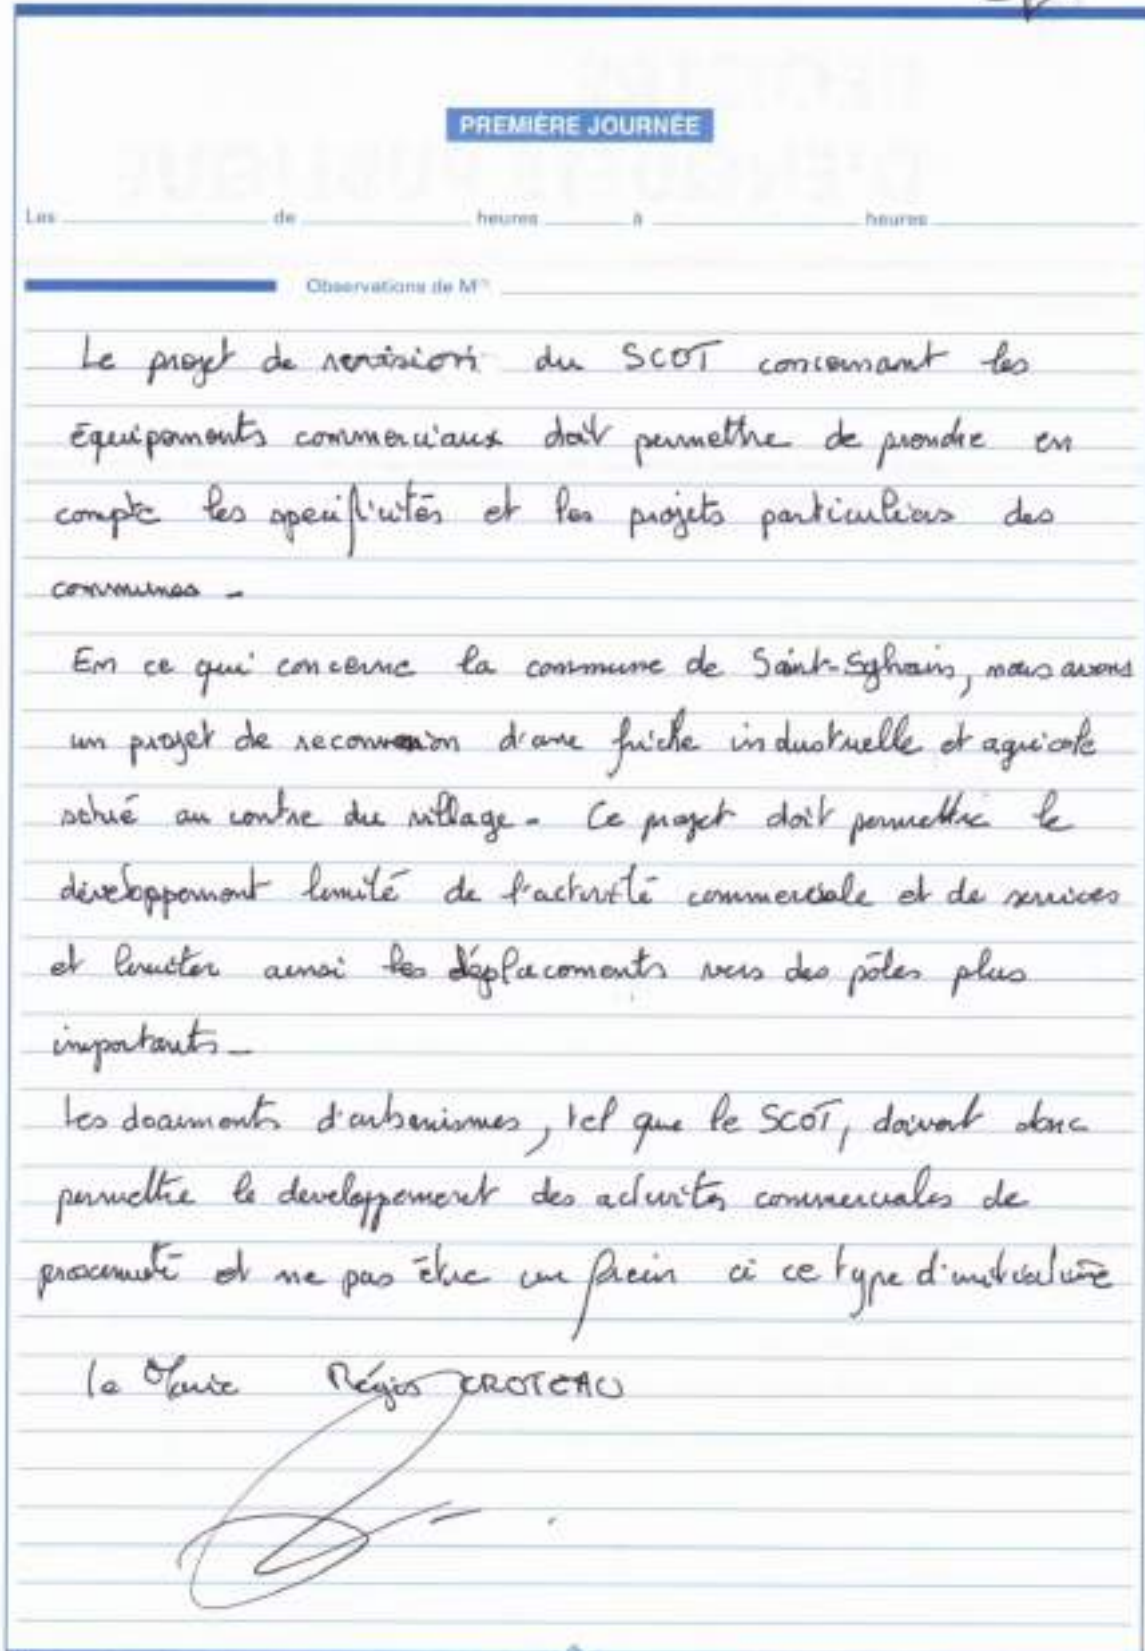 PREMIÈRE JOURNÉE
Les de heures à heures
Observations de M
Le projet de revision du SCOT concernant les
équipements commerciaux doit permettre de prendre en
compte les spécificités et les projets particuliers des
communes -
En ce qui concerne la commune de Saint-Sylvain, nous avons
un projet de reconversion d'une friche industrielle et agricole
situé au centre du village - Ce projet doit permettre le
développement limité de l'activité commerciale et de services
et limiter ainsi les déplacements vers des pôles plus
importants -
Les documents d'urbanismes, tel que le SCOT, doivent donc
permettre le developpement des activités commerciales de
proximité et ne pas être un frein à ce type d'initiative
le Maire Régis CROTEAU